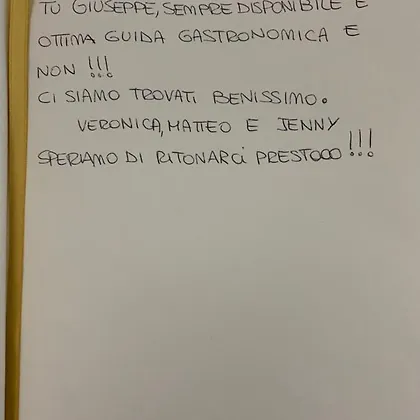 TU GIUSEPPE, SEMPRE DISPONIBILE E
OTTIMA GUIDA GASTRONOMICA E
NON !!!
CI SIAMO TROVATI BENISSIMO.
VERONICA, MATTEO E JENNY
SPERIAMO DI RITONARCI PRESTOOO !!!